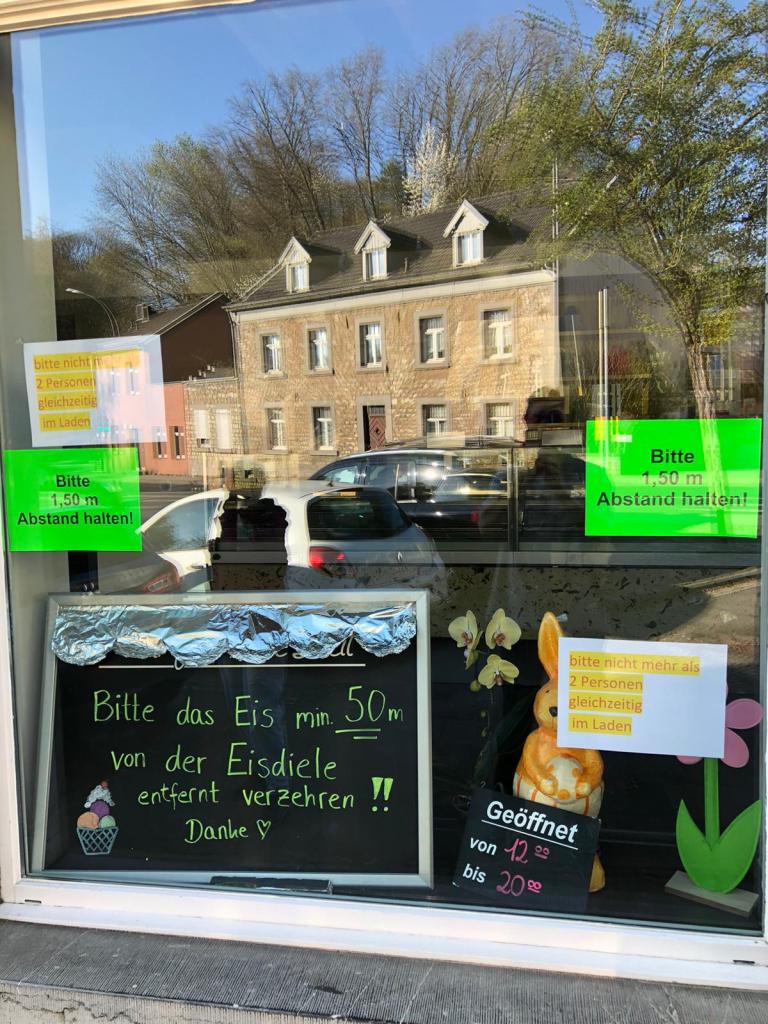 bitte nicht m
2 Personen
gleichzeitig
im Laden
Bitte
1,50 m
Abstand halten!
Bitte
1,50 m
Abstand halten!
Bitte das Eis min. 50m
von der Eisdiele
entfernt verzehren !!
Danke ♡
bitte nicht mehr als
2 Personen
gleichzeitig
im Laden
Geöffnet
von 12 00
bis 20 00